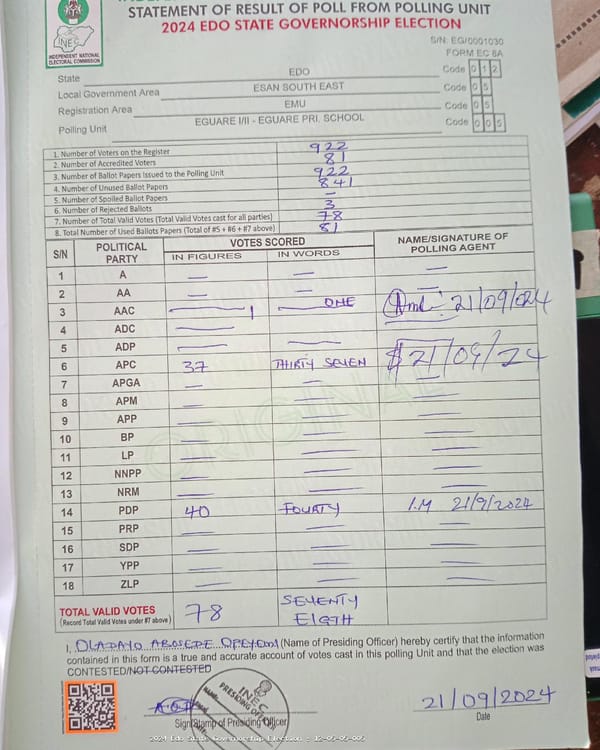 STATEMENT OF RESULT OF POLL FROM POLLING UNIT
2024 EDO STATE GOVERNORSHIP ELECTION
INEC
INDEPENDENT NATIONAL ELECTORAL COMMISSION
S/N: EG/0001030
FORM EC 8A
State EDO Code 0 1 2
Local Government Area ESAN SOUTH EAST Code 0 5
Registration Area EMU Code 0 5
Polling Unit EGUARE I/II - EGUARE PRI. SCHOOL Code 0 0 5
1. Number of Voters on the Register 922
2. Number of Accredited Voters 81
3. Number of Ballot Papers Issued to the Polling Unit 922
4. Number of Unused Ballot Papers 841
5. Number of Spoiled Ballot Papers —
6. Number of Rejected Ballots 3
7. Number of Total Valid Votes (Total Valid Votes cast for all parties) 78
8. Total Number of Used Ballots Papers (Total of #5 + #6 + #7 above) 81
S/N POLITICAL PARTY VOTES SCORED NAME/SIGNATURE OF POLLING AGENT
IN FIGURES IN WORDS
1 A — — —
2 AA — — —
3 AAC — 1 — ONE 21/09/2024
4 ADC —
5 ADP — —
6 APC 37 THIRTY SEVEN 21/09/24
7 APGA — —
8 APM — — —
9 APP — — —
10 BP — — —
11 LP — — —
12 NNPP — — —
13 NRM — — —
14 PDP 40 FOURTY I.M 21/9/2024
15 PRP — — —
16 SDP — — —
17 YPP — — —
18 ZLP — — —
ORIGINAL
TOTAL VALID VOTES
(Record Total Valid Votes under #7 above) 78 SEVENTY EIGTH
I, OLADAYO ABOSEDE OPEYEMI (Name of Presiding Officer) hereby certify that the information
contained in this form is a true and accurate account of votes cast in this polling Unit and that the election was
CONTESTED/NOT CONTESTED
INEC
PRESIDING OFF
NAME
21/09/2024
Sign/Stamp of Presiding Officer
Date
2024 Edo State Governorship Election : 12-05-05-005